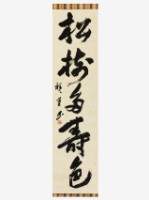 松樹多壽色